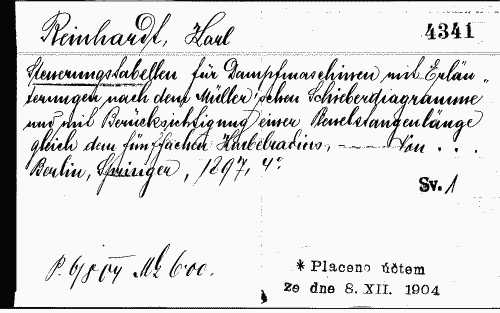 Reinhardt, Karl
4341
Steuerungstabellen für Dampfmaschinen mit Erläu„
terungen nach dem Müller'schen Schieberdiagramme
und mit Berücksichtigung einer Pleuelstangenlänge
gleich dem fünffachen Kurbelradius, — Von . . .
Berlin, Springer, 1897, 4°
Sv. 1
* Placeno účtem
ze dne 8. XII. 1904